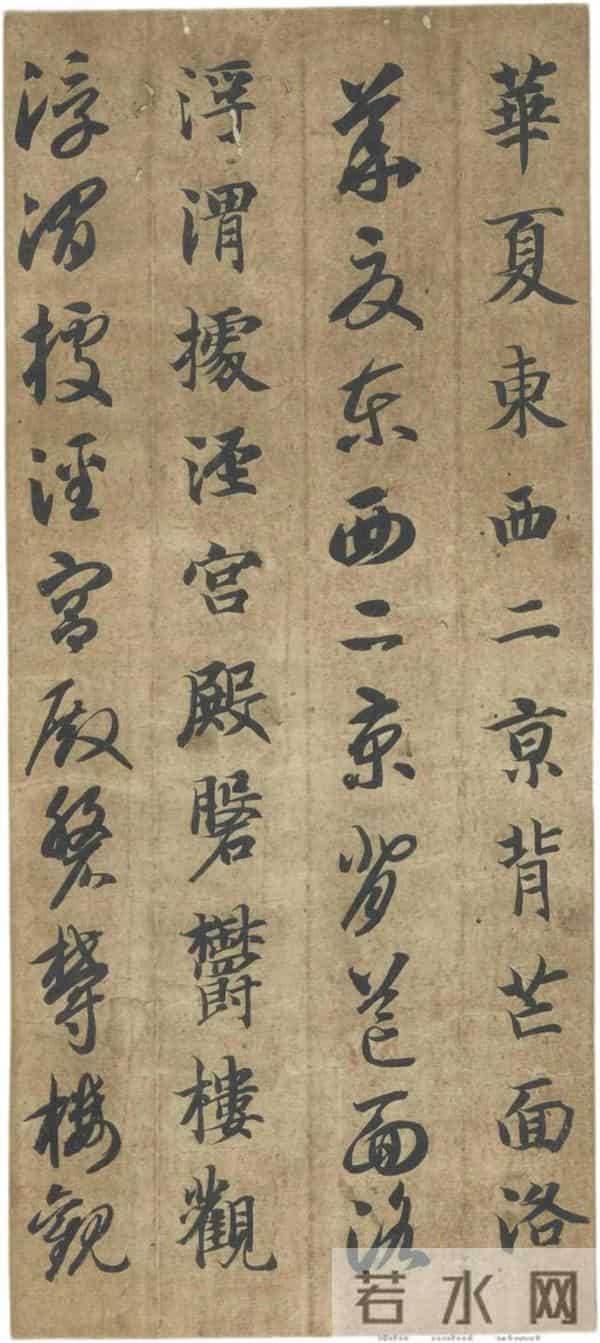 華夏東西二京背芒面洛
華夏東西二京背芒面洛
浮渭據涇宮殿磐鬱樓觀
浮渭據涇宮殿磐鬱樓觀
若水网